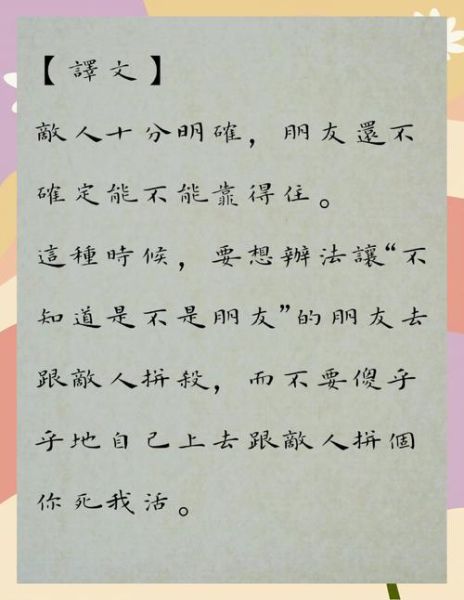 【譯文】
敵人十分明確，朋友還不
確定能不能靠得住。
這種時候，要想辦法讓“不
知道是不是朋友”的朋友去
跟敵人拼殺，而不要傻乎
乎地自己上去跟敵人拼個
你死我活。